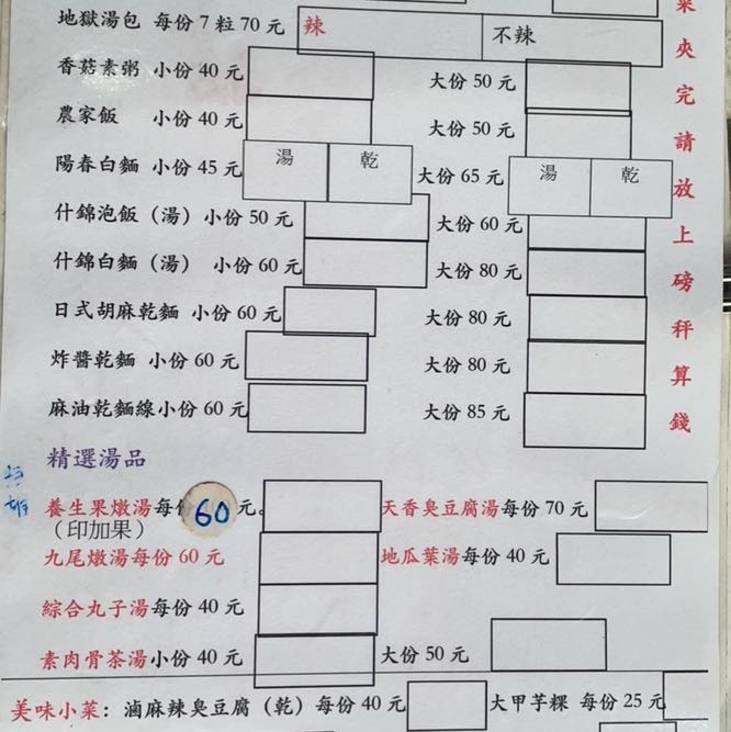 地獄湯包 每份 7 粒 70 元 辣 不辣
香菇素粥 小份 40 元 大份 50 元
農家飯 小份 40 元 大份 50 元
陽春白麵 小份 45 元 湯 乾 大份 65 元 湯 乾
什錦泡飯（湯）小份 50 元 大份 60 元
什錦白麵（湯） 小份 60 元 大份 80 元
日式胡麻乾麵 小份 60 元 大份 80 元
炸醬乾麵 小份 60 元 大份 80 元
麻油乾麵線小份 60 元 大份 85 元
菜夾完請放上磅秤算錢
精選湯品
養生果燉湯每份 60 元。 天香臭豆腐湯每份 70 元
（印加果）
九尾燉湯每份 60 元 地瓜葉湯每份 40 元
綜合丸子湯每份 40 元
素肉骨茶湯小份 40 元 大份 50 元
美味小菜：滷麻辣臭豆腐（乾）每份 40 元 大甲芋粿 每份 25 元